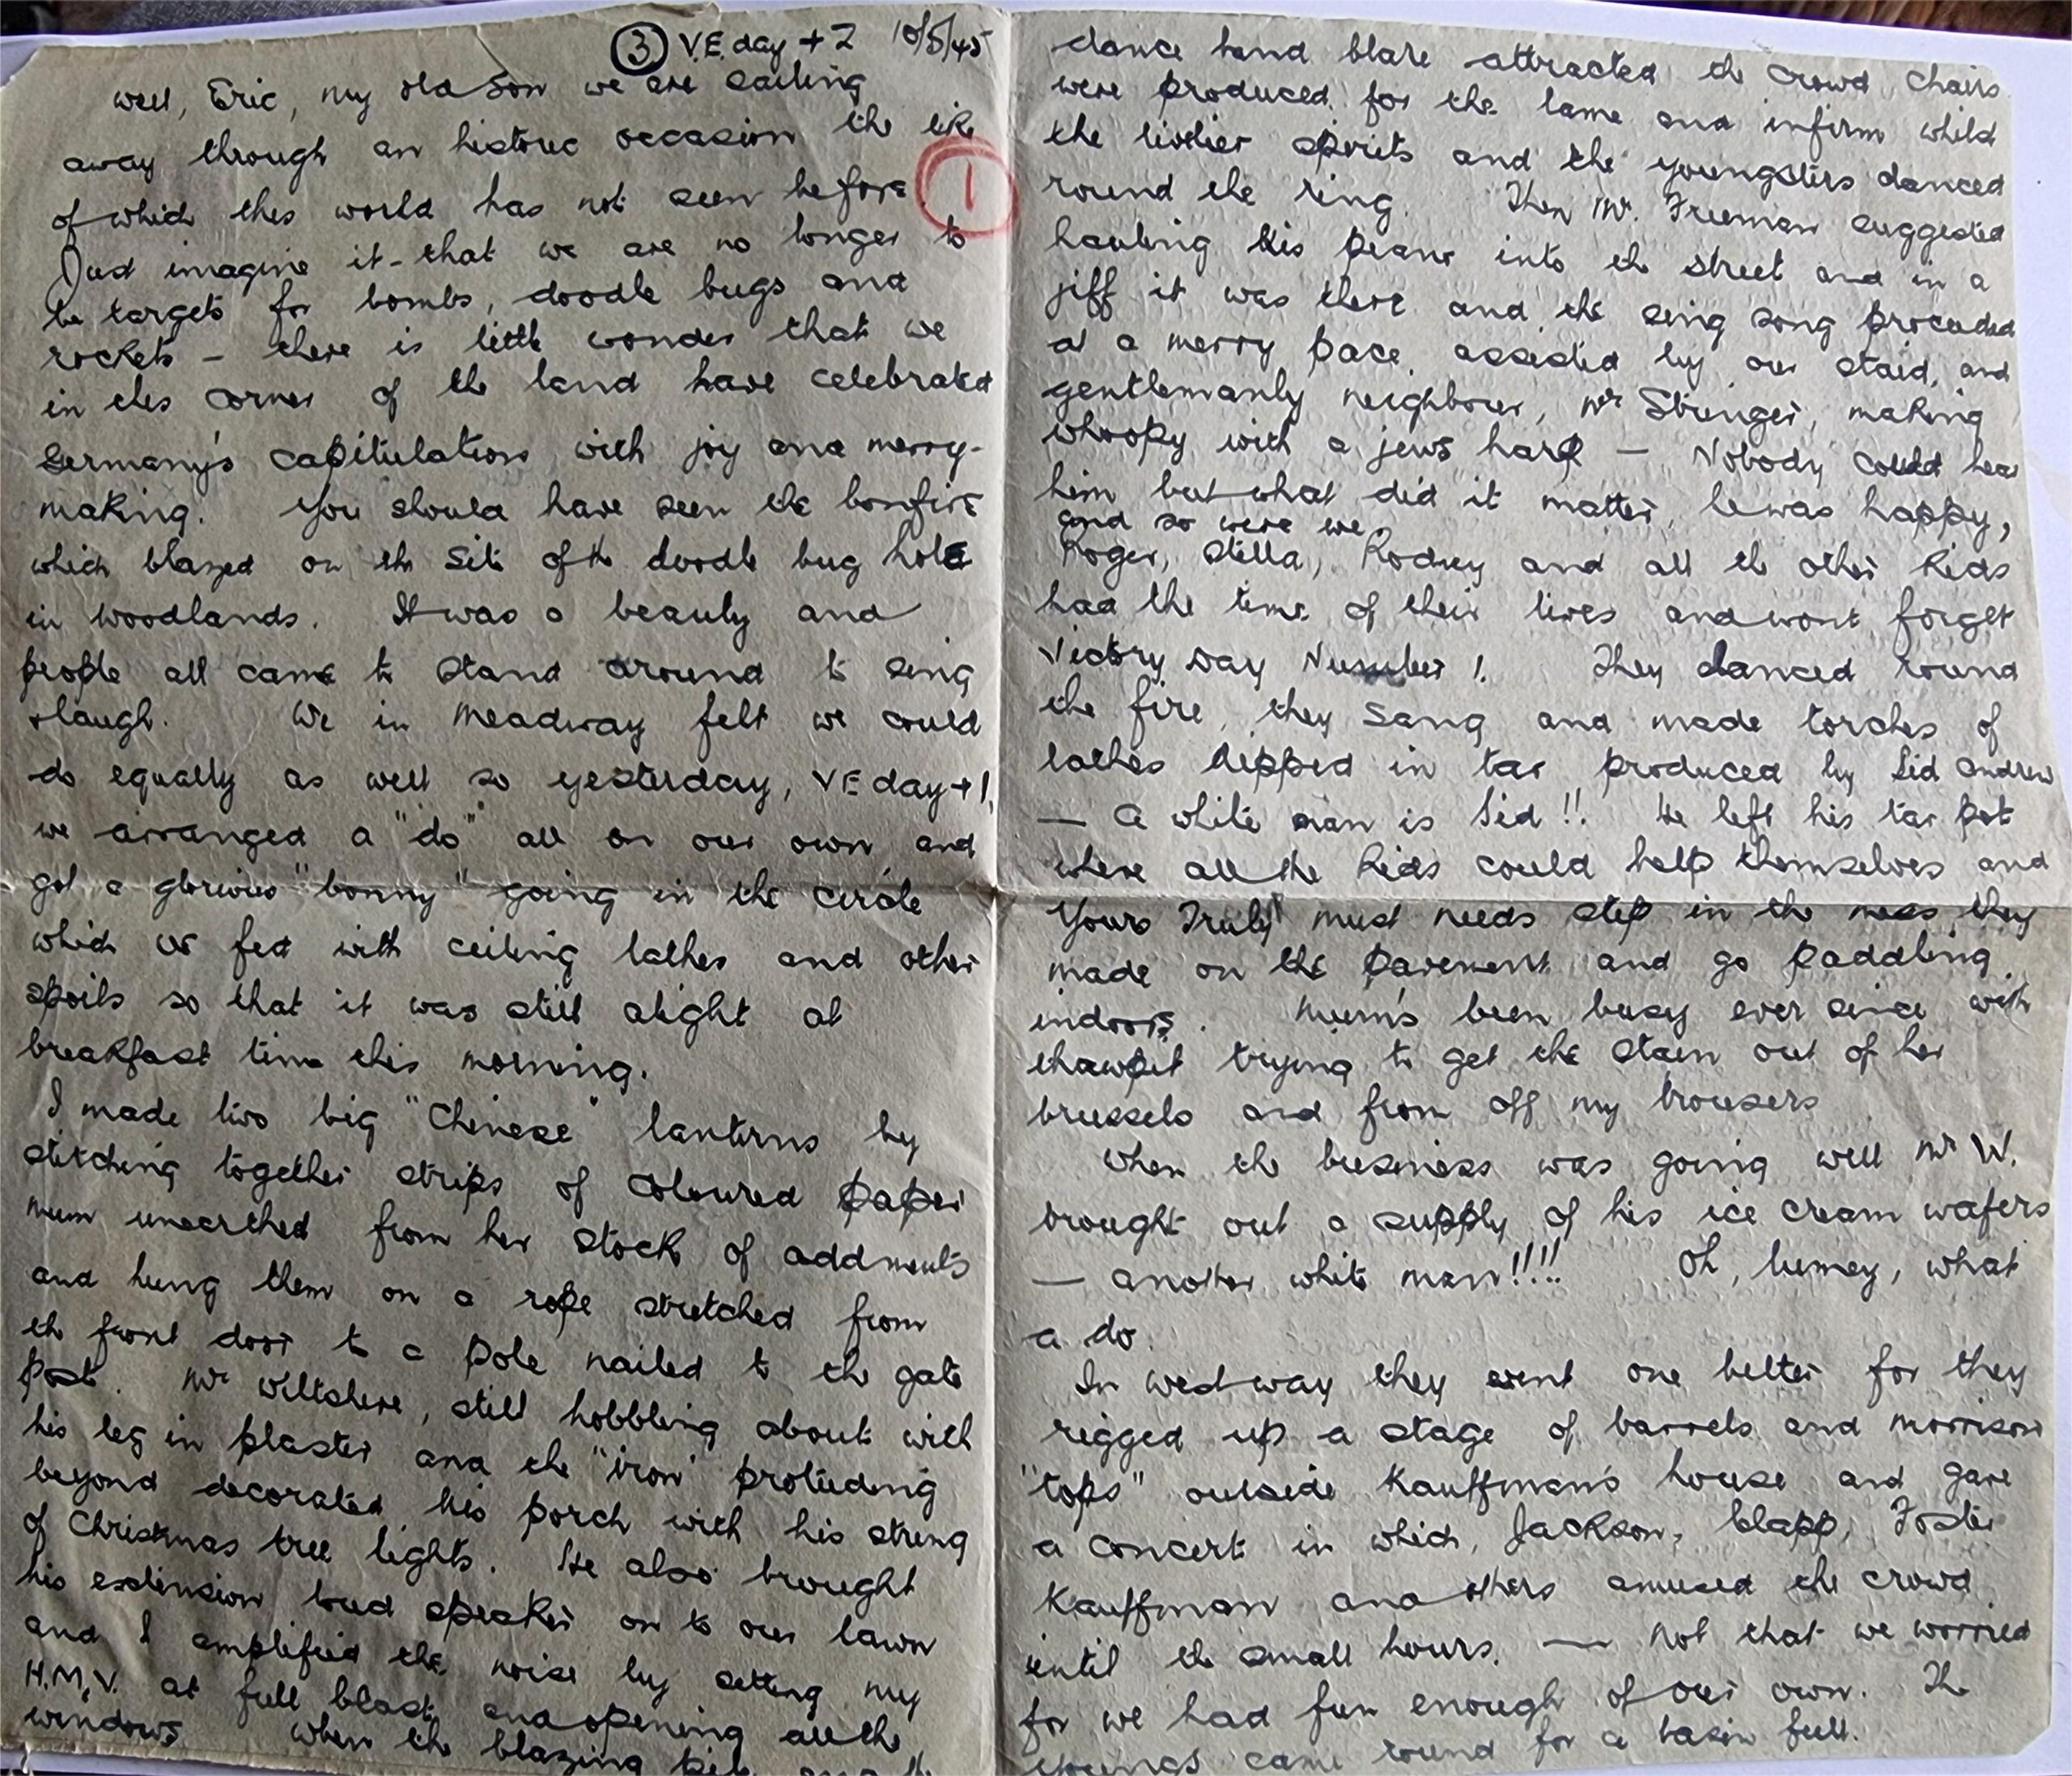 ③ V.E. day + 2 10/5/45
Well, Eric, my old son we are sailing
away through an historic occasion the like
of which this world has not seen before
1
Just imagine it - that we are no longer to
be targets for bombs, doodle bugs and
rockets - there is little wonder that we
in this corner of the land have celebrated
Germany's capitulation with joy and merry-
making. You should have seen the bonfire
which blazed on the site of the doodle bug hole
in Woodlands. It was a beauty and
people all came to stand around to sing
& laugh. We in Meadway felt we could
do equally as well so yesterday, VE day + 1,
we arranged a "do" all on our own and
got a glorious "bonny" going in the circle
which we fed with ceiling lathes and other
spoils so that it was still alight at
breakfast time this morning.
I made two big "Chinese" lanterns by
stitching together strips of coloured paper
mum unearthed from her stock of addments
and hung them on a rope stretched from
the front door to a pole nailed to the gate
post. Mr Wiltshire, still hobbling about with
his leg in plaster and the "iron" protuding
beyond decorated his porch with his string
of Christmas tree lights. He also brought
his extension loud speaker on to our lawn
and I amplified the noise by setting my
H.M.V. at full blast and opening all the
windows when the blazing
dance band blare attracted the crowd chairs
were produced for the lame and infirm whilst
the livelier spirits and the youngsters danced
round the ring. Then Mr. Freeman suggested
hauling his piano into the street and in a
jiff it was there and the sing song proceeded
at a merry pace assisted by our staid, and
gentlemanly neighbour, Mr Stringer, making
whoopy with a jews harp — Nobody could hear
him but what did it matter, he was happy,
and so were we.
Roger, Stella, Rodney and all the other kids
had the time of their lives and wont forget
Victory Day Number 1. They danced round
the fire, they sang and made torches of
lathes dipped in tar produced by Sid Andrew
— a white man is Sid!! He left his tar pot
where all the kids could help themselves and
Yours Truly must needs step in the mess they
made on the pavement and go paddling
indoors. Mum's been busy ever since with
thawpit trying to get the stain out of her
brussels and from off my trousers
When the business was going well Mr W.
brought out a supply of his ice cream wafers
— another white man!!!! Oh, lumey, what
a do.
In Westway they went one better for they
rigged up a stage of barrels and morrison
"tops" outside Kauffman's house and gave
a concert in which, Jackson, Clapp, Foster
Kauffman and others amused the crowd
until the small hours. — Not that we worried
for we had fun enough of our own. The
Youngs came round for a basin full.